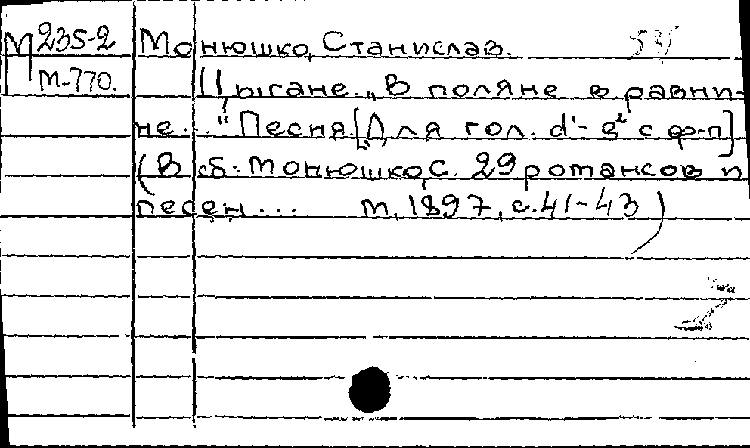 М 235-2 Монюшко, Станислав.
М-770. Цыгане. „В поляне в равни-
не..." Песня. [Для гол. d'- g² с ф-п]
(В сб: Монюшко, С. 29 романсов и
песен... М., 1897, с. 41-43)